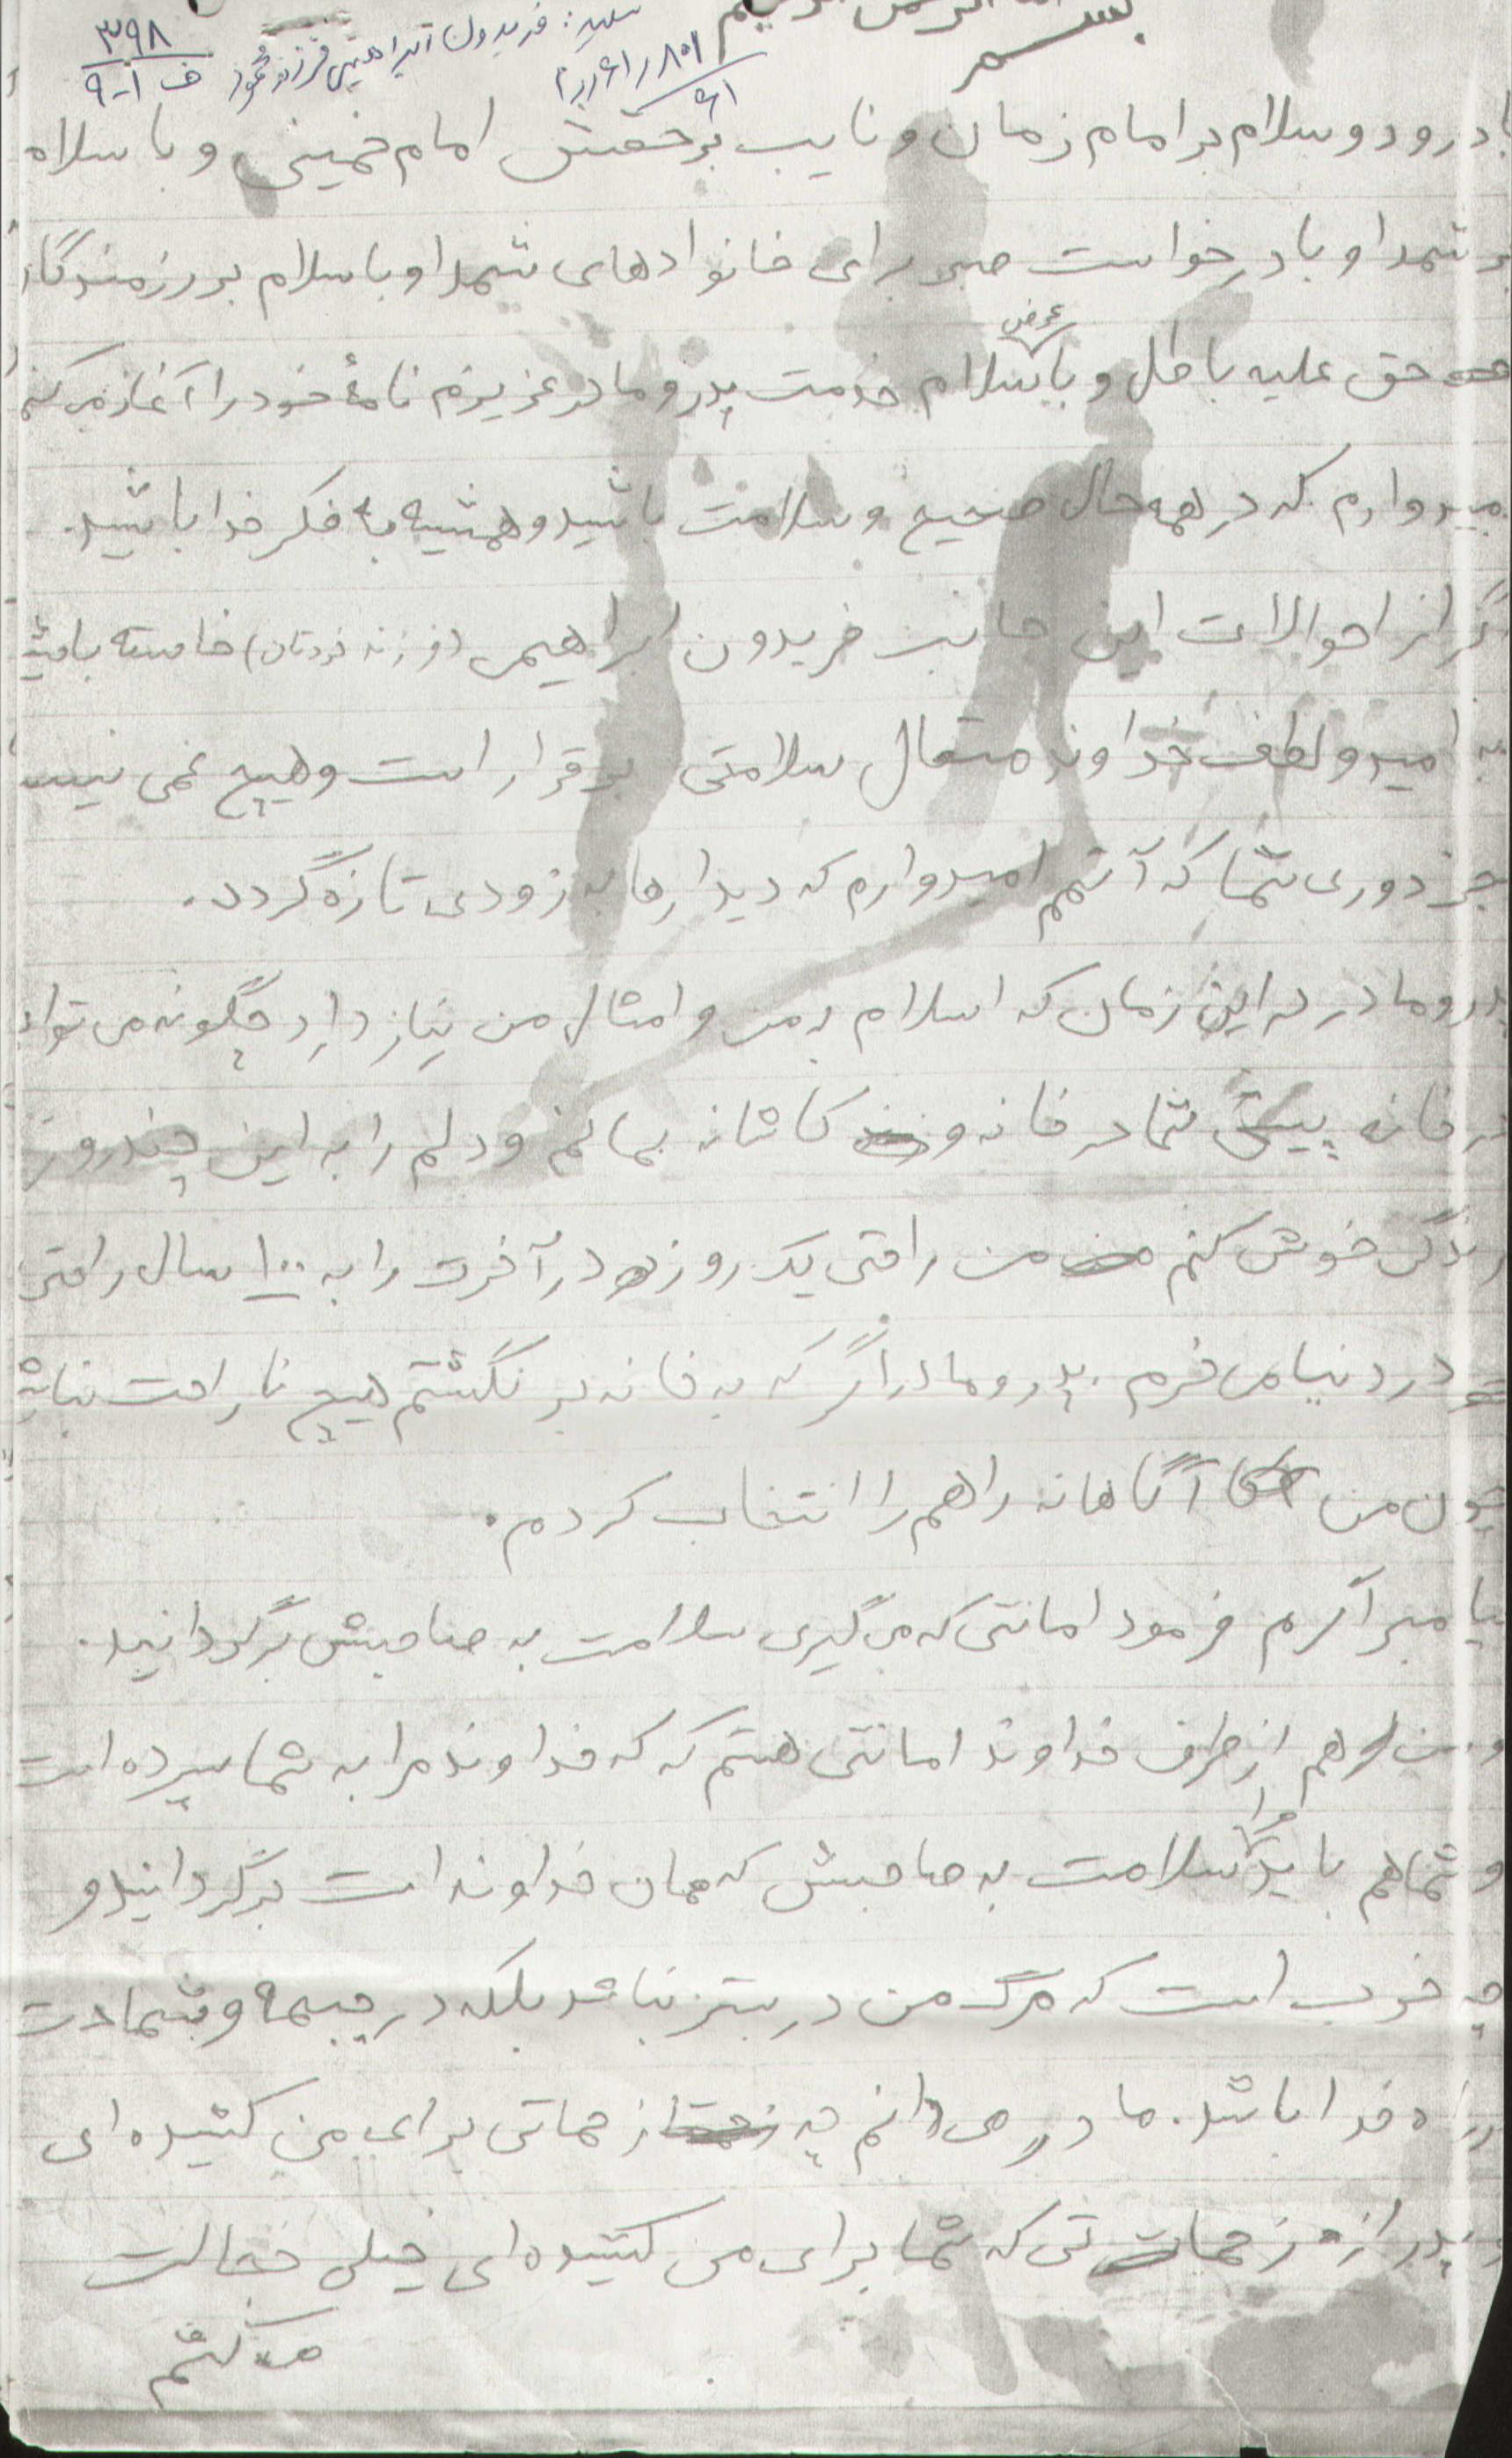 بسم الله الرحمن الرحیم
شهید: فریدون ابراهیمی فرزند محمود
۳۹۸
ف ا-۹
با درود و سلام بر امام زمان و نایب برحقش امام خمینی و با سلام
بر شهدا و با درخواست صبر برای خانوادهای شهدا و با سلام بر رزمندگان
حق علیه باطل و با عرض سلام خدمت پدر و مادر عزیزم نامهٔ خود را آغاز می کنم
امیدوارم که در همه حال صحیح و سلامت باشید و همشیه به فکر خدا باشید.
اگر از احوالات این جانب فریدون ابراهیمی (فرزند خودتان) خاسته باشید
به امید و لطف خداوند متعال سلامتی برقرار است و هیچ غمی نیست
بجز دوری شما که آنهم امیدوارم که دیدارها به زودی تازه گردد.
پدر و مادر در این زمان که اسلام به من و امثال من نیاز دارد چگونه می توانم
در خانه پیش شما در خانه و کاشانه بمانم و دلم را به این چند روز
زندگی خوش کنم من راحتی یک روز در آخرت را به ۱۰۰ سال راحتی
در دنیا می خرم. پدر و مادر اگر که به خانه بر نگشتم هیچ ناراحت نباشید
چون من آگاهانه راهم را انتخاب کردم.
پیامبر اکرم فرمود امانتی که می گیری سلامت به صاحبش برگردانید.
و من هم از طرف خداوند امانتی هستم که که خداوند مرا به شما سپرده است
و شما هم باید مرا سلامت به صاحبش که همان خداوند است برگردانید و
چه خوب است که مرگ من در بستر نباشد بلکه در جبهه و شهادت
در راه خدا باشد. مادر می دانم چه زحماتی برای من کشیده ای
و پدر از زحماتی که شما برای من کشیده ای خیلی خجالت
می کشم